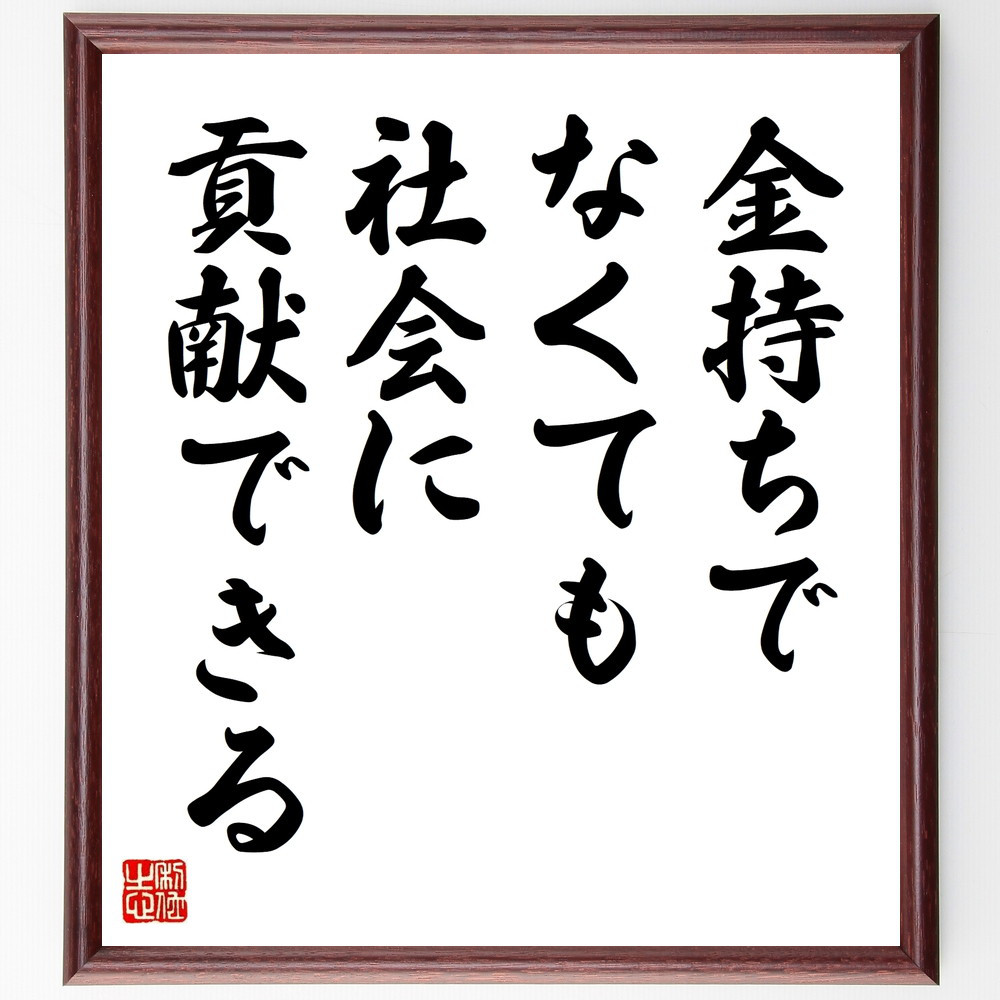 金持ちで
なくても
社会に
貢献できる